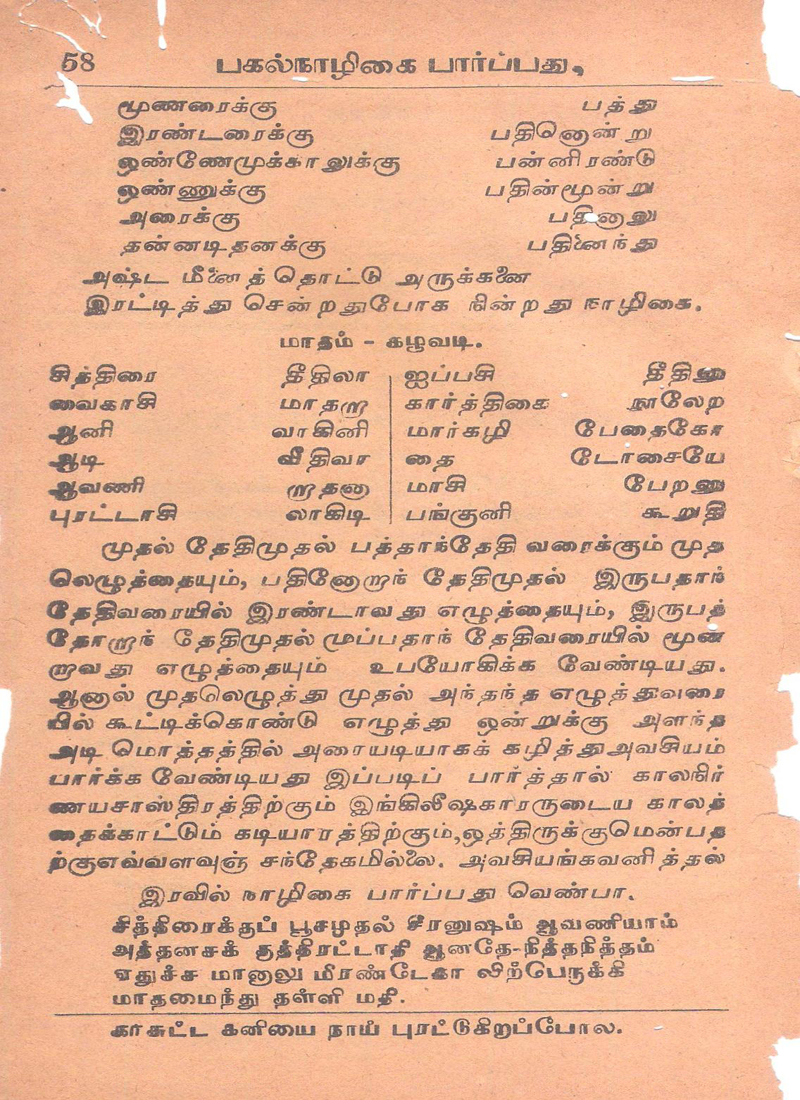 58 பகல்நாழிகை பார்ப்பது,
மூணரைக்கு பத்து
இரண்டரைக்கு பதினொன்று
ஒண்ணேமுக்காலுக்கு பன்னிரண்டு
ஒண்ணுக்கு பதின்மூன்று
அரைக்கு பதினாலு
தன்னடிதனக்கு பதினைந்து
அஷ்ட மீனைத் தொட்டு அருக்கனை
இரட்டித்து சென்றதுபோக நின்றது நாழிகை.
மாதம் - கழுவடி.
சித்திரை தீதிலா ஐப்பசி தீதினா
வைகாசி மாதறா கார்த்திகை நூலேற
ஆனி வாகினி மார்கழி பேதைகோ
ஆடி வீதிவா தை டோசையே
ஆவணி றாதனா மாசி பேறணு
புரட்டாசி லாகிடி பங்குனி கூறுதி
முதல் தேதிமுதல் பத்தாந்தேதி வரைக்கும் முத
லெழுத்தையும், பதினோறாந் தேதிமுதல் இருபதாந்
தேதிவரையில் இரண்டாவது எழுத்தையும், இருபத்
தோறாந் தேதிமுதல் முப்பதாந் தேதிவரையில் மூன்
றாவது எழுத்தையும் உபயோகிக்க வேண்டியது.
ஆனால் முதலெழுத்து முதல் அந்தந்த எழுத்துவரை
யில் கூட்டிக்கொண்டு எழுத்து ஒன்றுக்கு அளந்த
அடி மொத்தத்தில் அரையடியாகக் கழித்து அவசியம்
பார்க்க வேண்டியது இப்படிப் பார்த்தால் காலநிர்
ணயசாஸ்திரத்திற்கும் இங்கிலீஷகாரருடைய காலத்
தைக்காட்டும் கடியாரத்திற்கும்,ஒத்திருக்குமென்பத
ற்குஎவ்வளவுஞ் சந்தேகமில்லை. அவசியங்கவனித்தல்
இரவில் நாழிகை பார்ப்பது வெண்பா.
சித்திரைக்குப் பூசமுதல் சீரனுஷம் ஆவணியாம்
அத்தனசக் குத்திரட்டாதி ஆனதே-நித்தநித்தம்
ஏதுச்ச மானாலு மீரண்டேகா லிற்பெருக்கி
மாதமைந்து தள்ளி மதி.
கர்சுட்ட கனியை நாய் புரட்டுகிறப்போல.